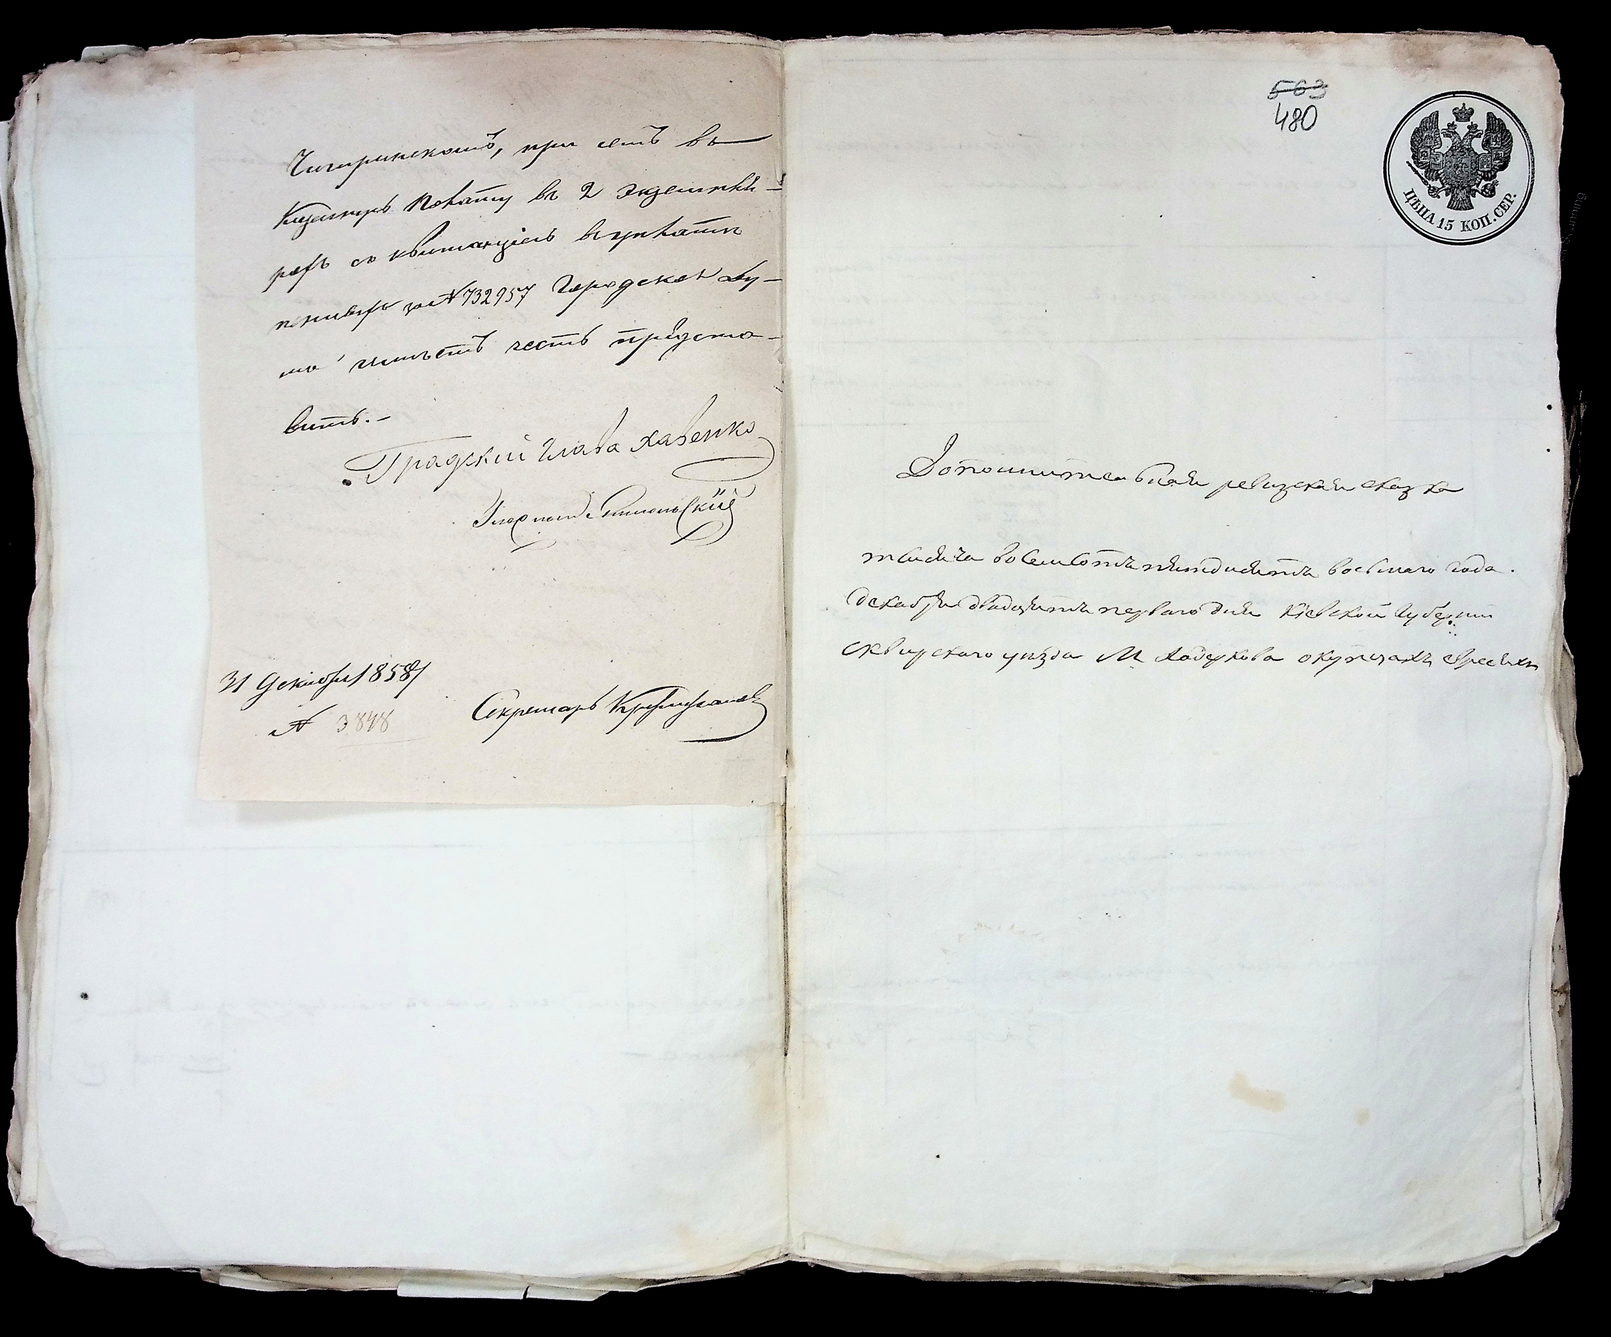 Чигиринскомъ, при семъ въ
Казенную Палату въ 2 экземпля-
рахъ съ квитанціею въ уплатѣ
за № 732957 Городская Ду-
ма имѣетъ честь предста-
вить.-
Градскій Глава Хавенко
31 Декабря 1858
№ 3848
Секретарь
563
480
ЦѢНА 15 КОП. СЕР.
Дополнительная ревизская сказка
тысяча восемсотъ пятдисятъ восмаго года.
декабря двадцать перваго дня Кіевской Губерніи
Сквирскаго уѣзда М. Ходоркова о купцахъ евреяхъ